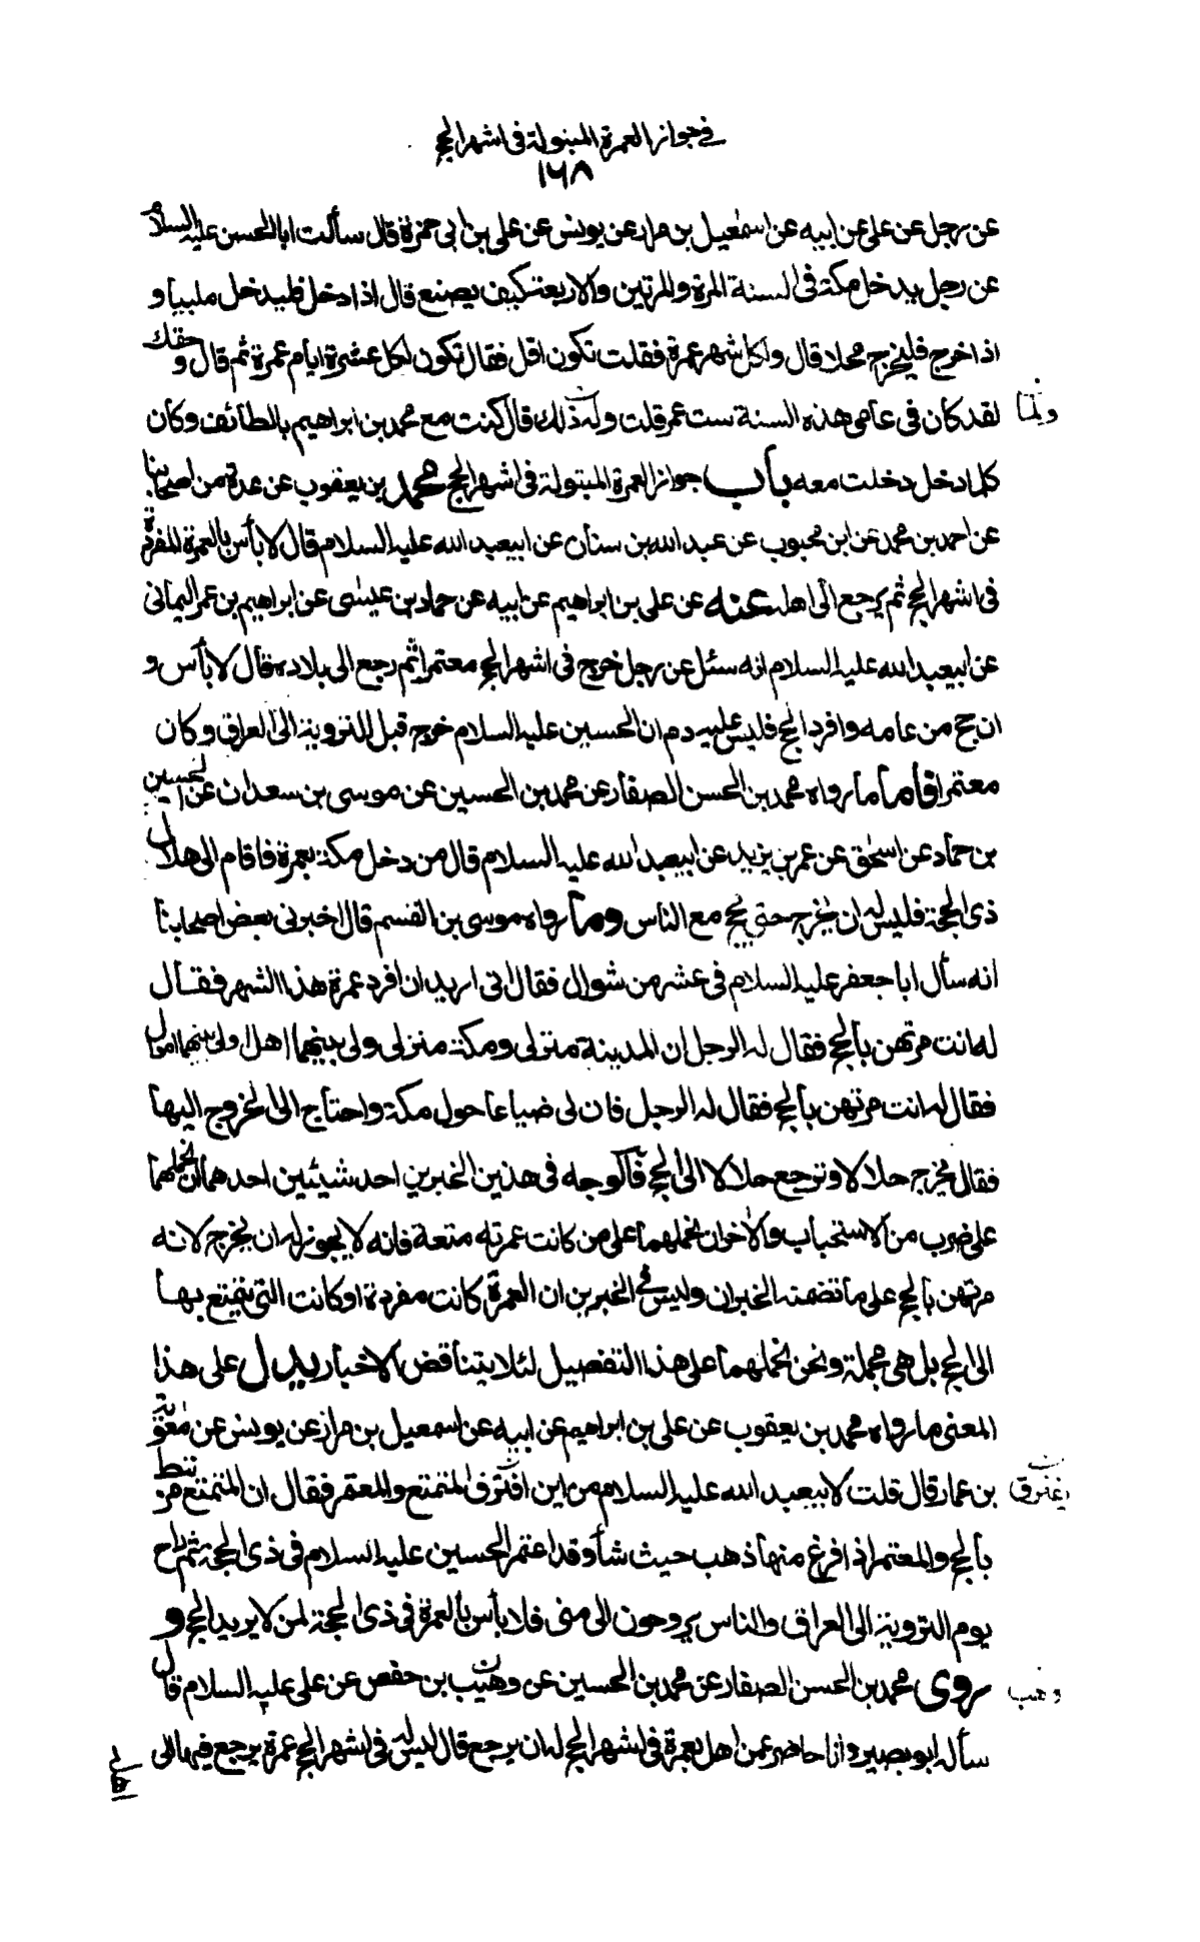 في جواز العمرة المبتولة فى اشهر الحج
١٦٨
عن رجل عن على عن ابيه عن اسمعيل بن مرار عن يونس عن على بن ابى حمزة قال سألت ابا الحسن عليه السلام
عن رجل يدخل مكة فى السنة المرة والمرتين والاربعة كيف يصنع قال اذا دخل فليدخل ملبيا و
اذا خرج فليخرج محلا قال ولكل شهر عمرة فقلت تكون اقل فقال تكون لكل عشرة ايام عمرة ثم قال وحقك
لقد كان فى عامى هذه السنة ست عمر قلت ولم ذلك قال كنت مع محمد بن ابراهيم بالطائف وكان
كلما دخل دخلت معه باب جواز العمرة المبتولة فى اشهر الحج محمد بن يعقوب عن عدة من اصحابنا
عن احمد بن محمد عن ابن محبوب عن عبد الله بن سنان عن ابيعبد الله عليه السلام قال لا بأس بالعمرة المفردة
فى اشهر الحج ثم يرجع الى اهله عنه عن على بن ابراهيم عن ابيه عن حماد بن عيسى عن ابراهيم بن عمر اليمانى
عن ابيعبد الله عليه السلام انه سئل عن رجل خرج فى اشهر الحج معتمرا ثم رجع الى بلاده قال لا بأس و
ان حج من عامه وافرد الحج فليس عليه دم ان الحسين عليه السلام خرج قبل التروية الى العراق وكان
معتمرا فاما ما رواه محمد بن الحسن الصفار عن محمد بن الحسين عن موسى بن سعدان عن الحسين
بن حماد عن اسحق عن عمر بن يزيد عن ابيعبد الله عليه السلام قال من دخل مكة بعمرة فاقام الى هلال
ذى الحجة فليس له ان يخرج حتى يحج مع الناس وما رواه موسى بن القسم قال اخبرنى بعض اصحابنا
انه سأل ابا جعفر عليه السلام فى عشر من شوال فقال انى اريد ان افرد عمرة هذا الشهر فقال
له انت مرتهن بالحج فقال له الرجل ان المدينة منزلى ومكة منزلى ولى بينهما اهل ولى بينهما اموال
فقال له انت مرتهن بالحج فقال له الرجل فان لى ضياعا حول مكة واحتاج الى الخروج اليها
فقال يخرج حلالا وترجع حلالا الى الحج فالوجه فى هذين الخبرين احد شيئين احدهما ان نحملهما
على ضرب من الاستحباب والاخر ان نحملهما على من كانت عمرته متعة فانه لا يجوز له ان يخرج لانه
مرتهن بالحج على ما تضمنه الخبران وليس فى الخبرين ان العمرة كانت مفردة او كانت التى يتمتع بها
الى الحج بل هى مجملة ونحن نحملهما على هذا التفصيل لئلا يتناقض الاخبار يدل على هذا
المعنى ما رواه محمد بن يعقوب عن على بن ابراهيم عن ابيه عن اسمعيل بن مرار عن يونس عن معوية
بن عمار قال قلت لابيعبد الله عليه السلام من اين افترق المتمتع والمعتمر فقال ان المتمتع مرتبط
يفترق
بالحج والمعتمر اذا فرغ منها ذهب حيث شاء وقد اعتمر الحسين عليه السلام فى ذى الحجة ثم راح
يوم التروية الى العراق والناس يروحون الى منى فلا بأس بالعمرة فى ذى الحجة لمن لا يريد الحج و
روى محمد بن الحسن الصفار عن محمد بن الحسين عن وهيب بن حفص عن على عليه السلام قال
وهب
سأله ابو بصير وانا حاضر عمن اهل بعمرة فى اشهر الحج له ان يرجع قال ليس له فى اشهر الحج عمرة يرجع فيها الى